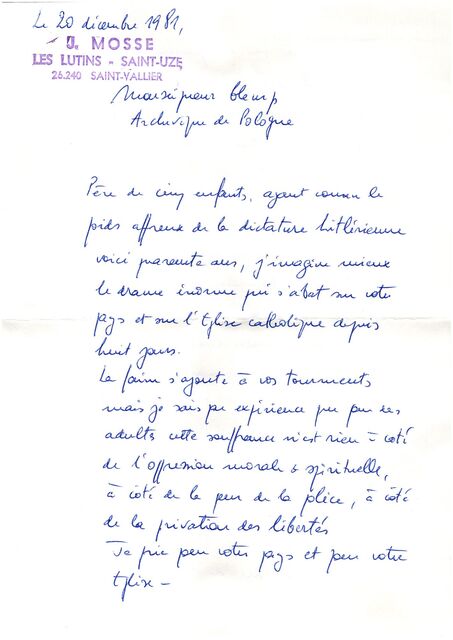 Le 20 décembre 1981,
J. MOSSE
LES LUTINS - SAINT-UZE
26.240 SAINT-VALLIER
Monseigneur Glemp
Archevêque de Pologne
Père de cinq enfants, ayant connu le
poids affreux de la dictature hitlérienne
voici quarante ans, j'imagine mieux
le drame énorme qui s'abat sur votre
pays et sur l'Eglise catholique depuis
huit jours.
La faim s'ajoute à vos tourments
mais je sais par expérience que pour les
adultes cette souffrance n'est rien à côté
de l'oppression morale & spirituelle,
à côté de la peur de la police, à côté
de la privation des libertés
Je prie pour votre pays et pour votre
Eglise -